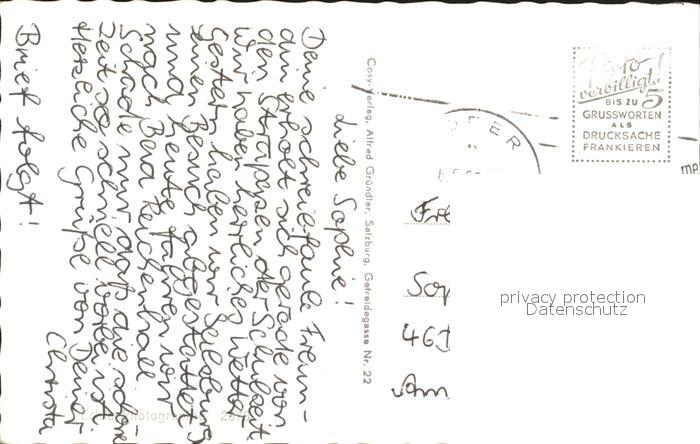 Liebe Sophie!
Deine schreibfaule Freun-
din erholt sich gerade von
den Strapazen der Schulzeit.
Wir haben herrliches Wetter.
Gestern haben wir Salzburg
einen Besuch abgestattet
und heute fahren wir
nach Bad Reichenhall.
Schade nur, daß die schöne
Zeit so schnell vorbei ist.
Herzliche Grüße von Deiner
Christa
Brief folgt!
Cosy-Verlag, Alfred Gründler, Salzburg, Getreidegasse Nr. 22
verbilligt!
BIS ZU 5
GRUSSWORTEN
ALS
DRUCKSACHE
FRANKIEREN
privacy protection
Datenschutz